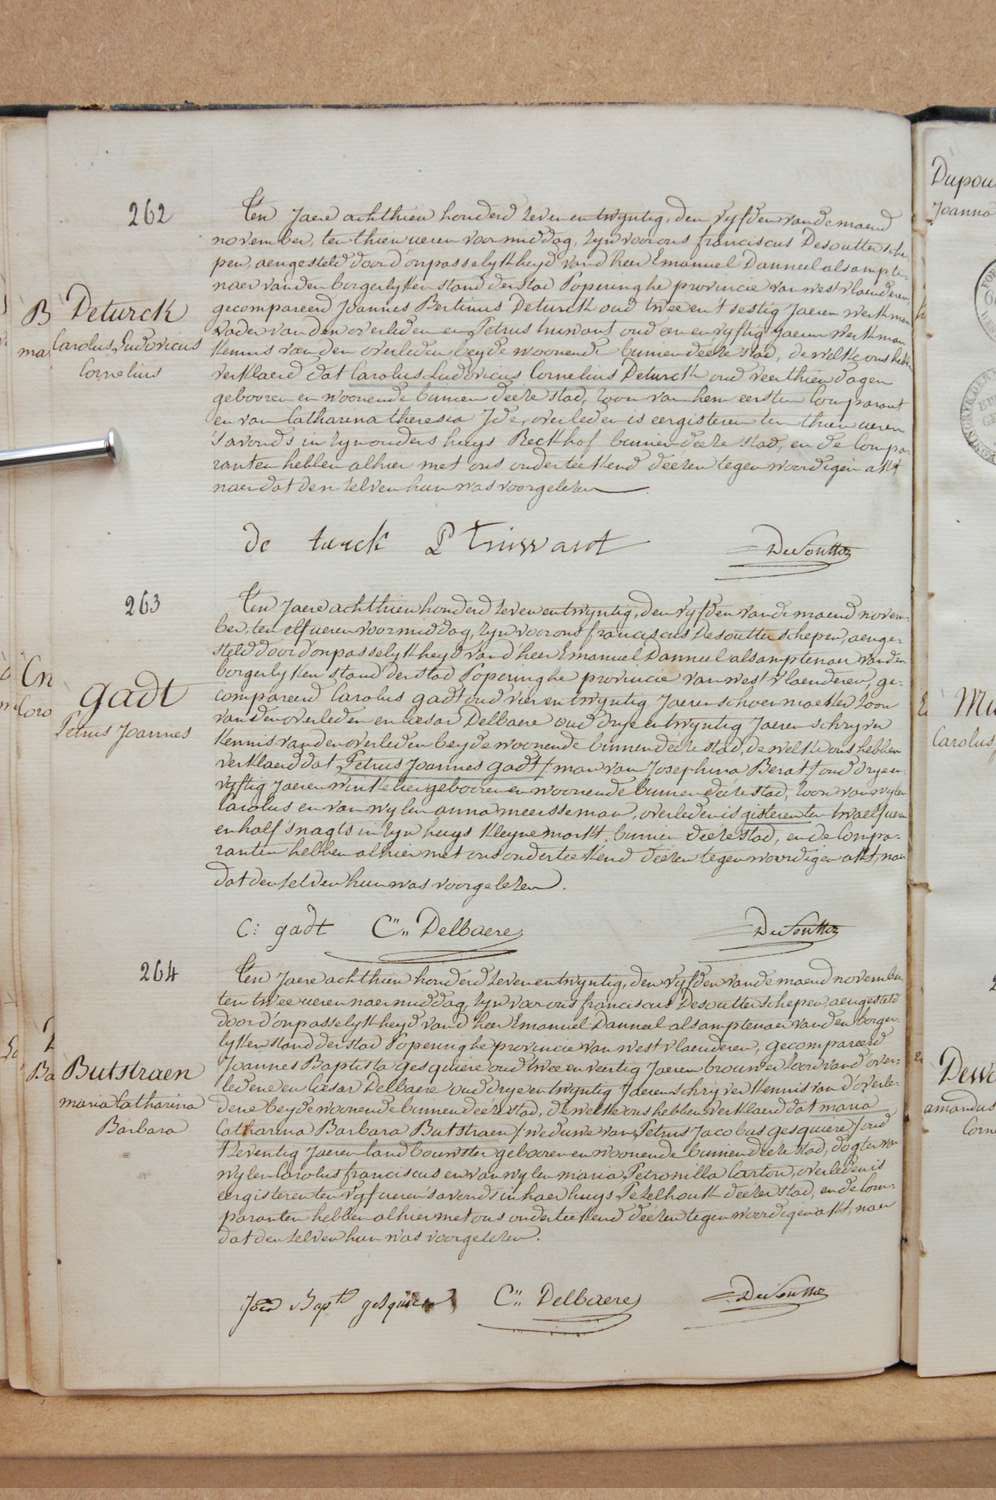 262
Deturck
Carolus Ludovicus
Cornelius
Ten Jaere achthien honderd zeven en twyntig, den vyfden van de maend
november, ten thien ueren voormiddag, zyn voor ons franciscus Desoutter sche-
pen, aengesteld door d'onpasselykheyd van d'heer Emanuel Danneel als ampte-
naer van den borgerlyken stand der stad Poperinghe provincie van westvlaenderen
gecompareerd Joannes Bertinus Deturck oud twee en t'sestig Jaeren werkman
vader van den overleden en Petrus oud en vyftig Jaeren werkman
kennis van den overleden beyde woonende binnen deeze stad, de welke ons hebben
verklaerd dat Carolus Ludovicus Cornelius Deturck oud veerthien dagen
gebooren en woonende binnen deeze stad, zoon van hem eersten Comparant
en van Catharina theresia Ide, overleden is eergisteren ten thien ueren
s'avonds in zyn ouders huys Reckhof binnen deeze stad, en de Compa-
ranten hebben alhier met ons onderteekend deezen tegenwoordigen akt
naer dat den zelven hun was voorgelezen
de turck P Desoutter
263
gadt
Petrus Joannes
Ten Jaere achthien honderd zeven en twyntig, den vyfden van de maend novem-
ber, ten elf ueren voormiddag, zyn voor ons franciscus Desoutter schepen, aenge-
steld door d'onpasselykheyd van d'heer Emanuel Danneel als amptenaer van den
borgerlyken stand der stad Poperinghe provincie van westvlaenderen, ge-
compareerd Carolus gadt oud vier en twyntig Jaeren schoenmaeker zoon
van den overleden en Cesar Delbaere oud drye en twyntig Jaeren schryver
kennis van den overleden beyde woonende binnen deeze stad, de welke ons hebben
verklaerd dat Petrus Joannes gadt / man van Josephina Berat / oud drye en
vyftig Jaeren winkelier gebooren en woonende binnen deeze stad, zoon van wylen
Carolus en van wylen anna meesseman, overleden is gisteren ten twaelf ueren
en half s'nagts in zyn huys kleyne markt binnen deeze stad, en de Compa-
ranten hebben alhier met ons onderteekend deezen tegenwoordigen akt, naer
dat den zelven hun was voorgelezen.
C: gadt Cr. Delbaere Desoutter
264
Butstraen
maria Catharina
Barbara
Ten Jaere achthien honderd zeven en twyntig, den vyfden van de maend november
ten twee ueren naermiddag, zyn voor ons franciscus Desoutter schepen aengesteld
door d'onpasselykheyd van d'heer Emanuel Danneel als amptenaer van den borger-
lyken stand der stad Poperinghe provincie van westvlaenderen, gecompareerd
Joannes Baptista gesquiere oud twee en veertig Jaeren brouwer zoon van d'over-
ledene en Cesar Delbaere oud drye en twyntig Jaeren schryver kennis van d'overle-
dene beyde woonende binnen deeze stad, de welke ons hebben verklaerd dat maria
Catharina Barbara Butstraen / weduwe van Petrus Jacobus gesquiere / oud
t'zeventig Jaeren landbouwster gebooren en woonende binnen deeze stad, dogter van
wylen Carolus franciscus en van wylen maria Petronilla Carton, overleden is
eergisteren ten vyf ueren s'avonds in haer huys Pezelhoek deezer stad, en de Com-
paranten hebben alhier met ons onderteekend deezen tegenwoordigen akt, naer
dat den zelven hun was voorgelezen.
Joan Bapte gesquiere Cr. Delbaere Desoutter
Joanna
Carolus
amandus